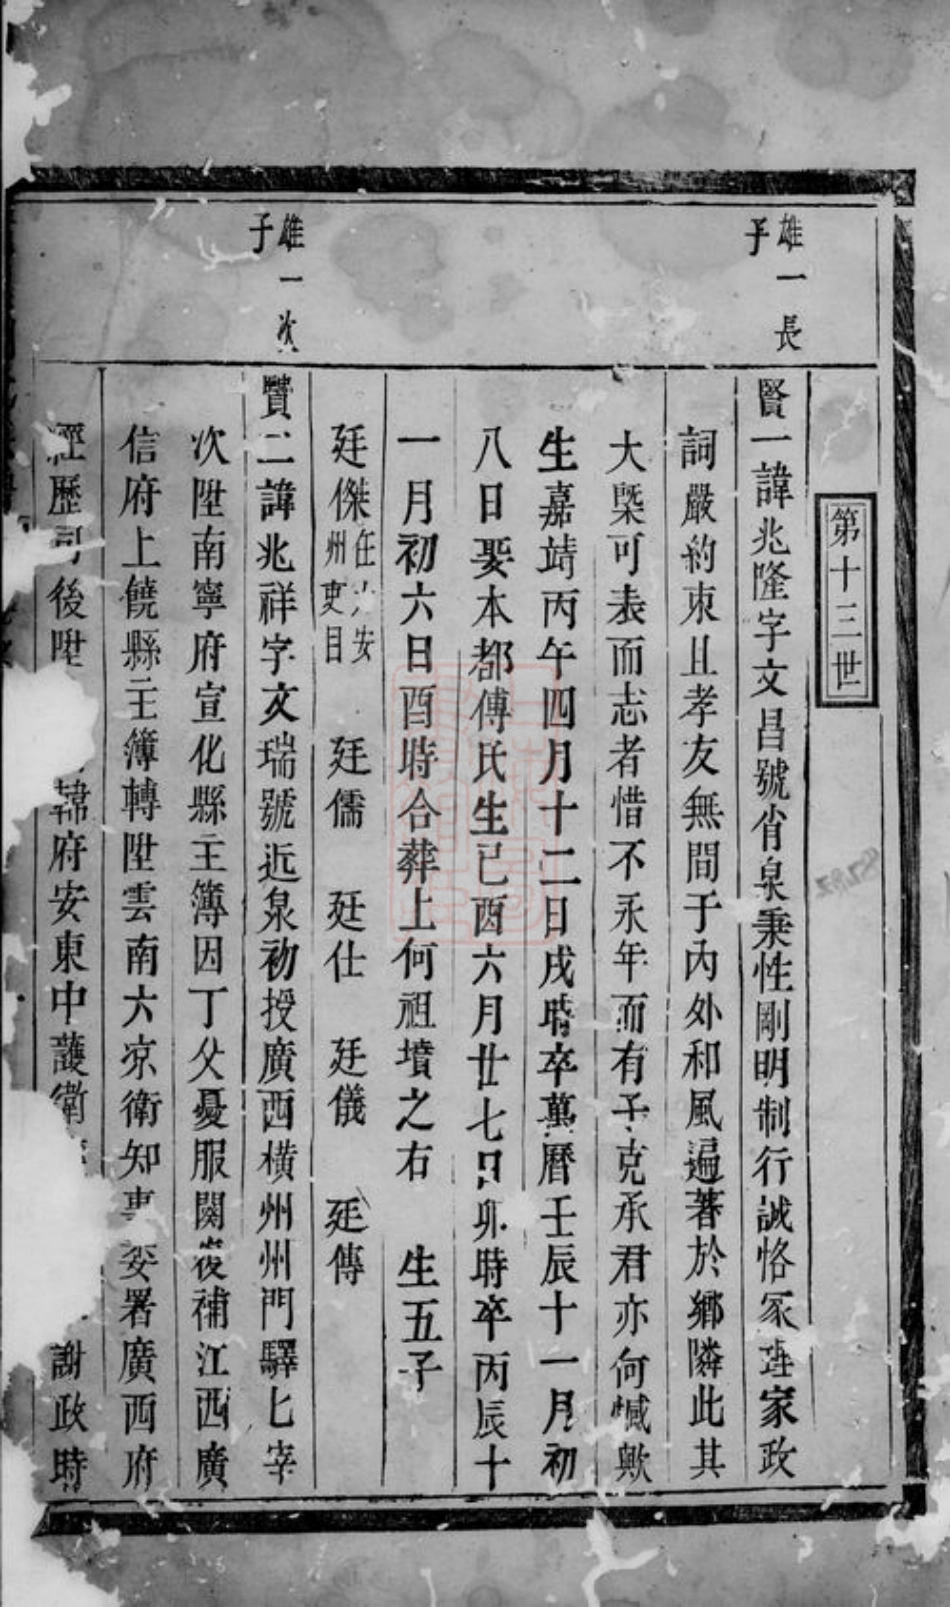 第十三世
雄一長
子
賢一諱兆隆字文昌號肖泉秉性剛明制行誠恪冢廷家政
詞嚴約束且孝友無間于內外和風遍著於鄉隣此其
大槩可表而志者惜不永年而有子克承君亦何憾歟
生嘉靖丙午四月十二日戌時卒萬曆壬辰十一月初
八日娶本都傅氏生己酉六月廿七日卯時卒丙辰十
一月初六日酉時合葬上何祖墳之右 生五子
廷傑任六安州吏目 廷儒 廷仕 廷儀 廷傳
雄一次
子
賢二諱兆祥字文瑞號近泉初授廣西橫州州門驛匕宰
次陞南寧府宣化縣主簿因丁父憂服闋復補江西廣
信府上饒縣主簿轉陞雲南六凉衛知事委署廣西府
經歷司後陞 韓府安東中護衛 謝政時